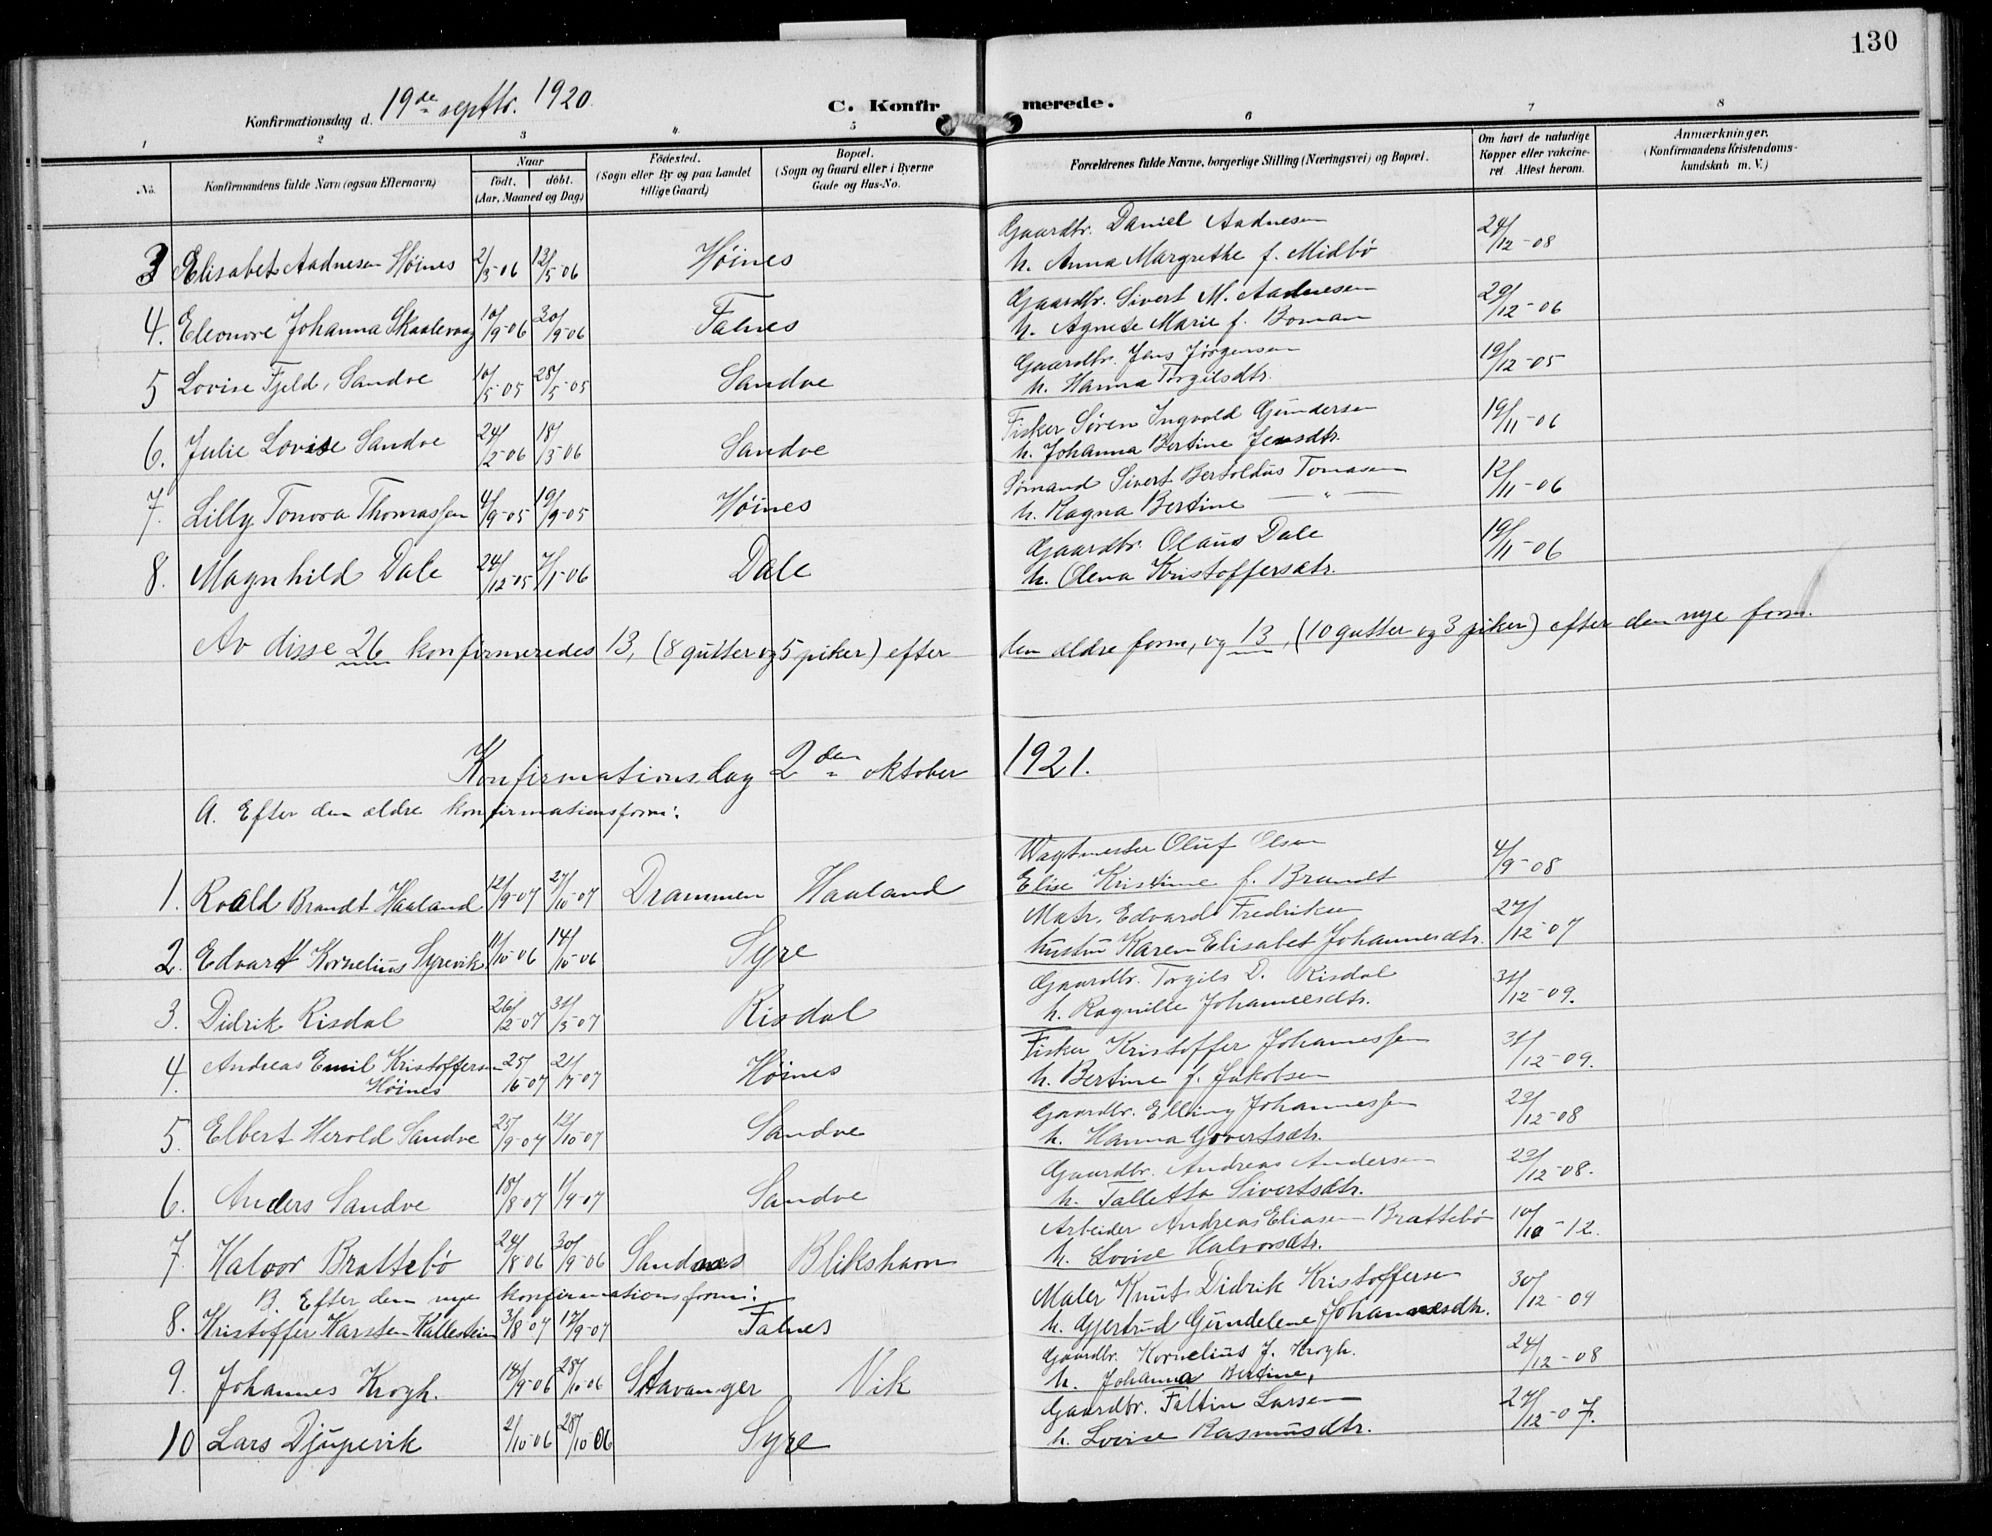 130
Konfirmationsdag d. 19de septbr. 1920.
C. Konfirmerede.
1 2 3 4 5 6 7 8
No.
Konfirmandens fulde Navn (ogsaa Efternavn)
Naar
født. døbt.
(Aar, Maaned og Dag)
Fødested.
(Sogn eller By og paa Landet
tillige Gaard)
Bopæl.
(Sogn og Gaard eller i Byerne
Gade og Hus-No.
Forældrenes fulde Navne, borgerlige Stilling (Næringsvei) og Bopæl.
Om havt de naturlige
Kopper eller vakcine-
ret Attest herom.
Anmærkninger.
(Konfirmandens Kristendoms-
kundskab m. V.)
Gaardbr. Daniel Aadnesen
3 Elisabet Aadnesen Høines 2/3-06 13/5-06 Høines h. Anna Margrethe f. Midbö 24/12-08
Gaardbr. Sivert M. Aadnesen
4. Eleonore Johanna Skaalevaag 10/9-06 30/9-06 Falnes h. Agnete Marie f. Boman 29/12-06
Gaardbr. Jens Jørgensen
5 Lovise Fjeld, Sandve 10/5-05 28/5-05 Sandve h. Hanna Torgilsdtr. 19/12-05
Fisker Søren Ingvald Gundersen
6. Julie Lovise Sandve 24/2-06 18/3-06 Sandve h. Johanna Bertine Jensdtr. 19/11-06
Sømand Sivert Bertoldus Tomasen
7. Lilly Tonora Thomassen 4/9-05 19/9-05 Høines h. Ragna Bertine — " — 12/11-06
Gaardbr. Olaus Dale
8. Magnhild Dale 24/12-05 7/1-06 Dale h. Olena Kristoffersdtr. 19/11-06
Av disse 26 konfirmeredes 13, (8 gutter og 5 piker) efter den ældre form, og 13, (10 gutter og 3 piker) efter den nye form.
Konfirmationsdag 2den oktober 1921.
A. Efter den ældre konfirmationsform:
Vagtmester Oluf Olsen
1. Roald Brandt Haaland 12/9-07 27/10-07 Drammen Haaland Elise Kristine f. Brandt 4/9-08
Matr. Edvard Fredriksen
2. Edvart Kornelius Syrevik 11/10-06 14/10-06 Syre hustru Karen Elisabet Johannesdtr. 27/12-07
Gaardbr. Torgils D. Risdal
3. Didrik Risdal 26/2-07 31/3-07 Risdal h. Ragnille Johannesdtr. 31/12-09.
Fisker Kristoffer Johannessen
4. Andreas Emil Kristoffersen
Høines 25/6-07 21/7-07 Høines h. Bertine f. Jakobsen 31/12-09.
Gaardbr. Elling Johannessen
5. Elbert Herold Sandve 25/9-07 13/10-07 Sandve h. Hanna Govertsdtr. 23/12-08
Gaardbr. Andreas Andersen
6. Anders Sandve 18/8-07 1/9-07 Sandve h. Talletta Sivertsdtr. 23/12-08.
Arbeider Andreas Eliasen Brattebö
7. Halvor Brattebö 24/8-06 30/9-06 Sandnes Blikshavn h. Lovise Halvorsdtr. 10/10-12.
B. Efter den nye konfirmationsform:
Maler Knut Didrik Kristoffersen
8. Kristoffer Karsten Kallestein 3/8-07 12/9-07 Falnes h. Gjertrud Gundelene Johannesdtr. 30/12-09
Gaardbr. Kornelius J. Krogh.
9. Johannes Krogh. 14/9-06 28/10-06 Stavanger Vik h. Johanna Bertine, 24/12-08
Gaardbr. Faltin Larsen
10 Lars Djupevik 2/10-06 28/10-06 Syre h. Lovise Rasmusdtr. 27/12-07.